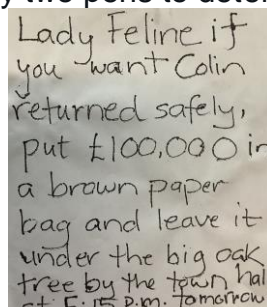 two pens to
Lady Feline if
you want Colin
returned safely,
put £100,000 in
a brown paper
bag and leave it
under the big oak
tree by the town hal
at 5:15 p.m. tomorrow